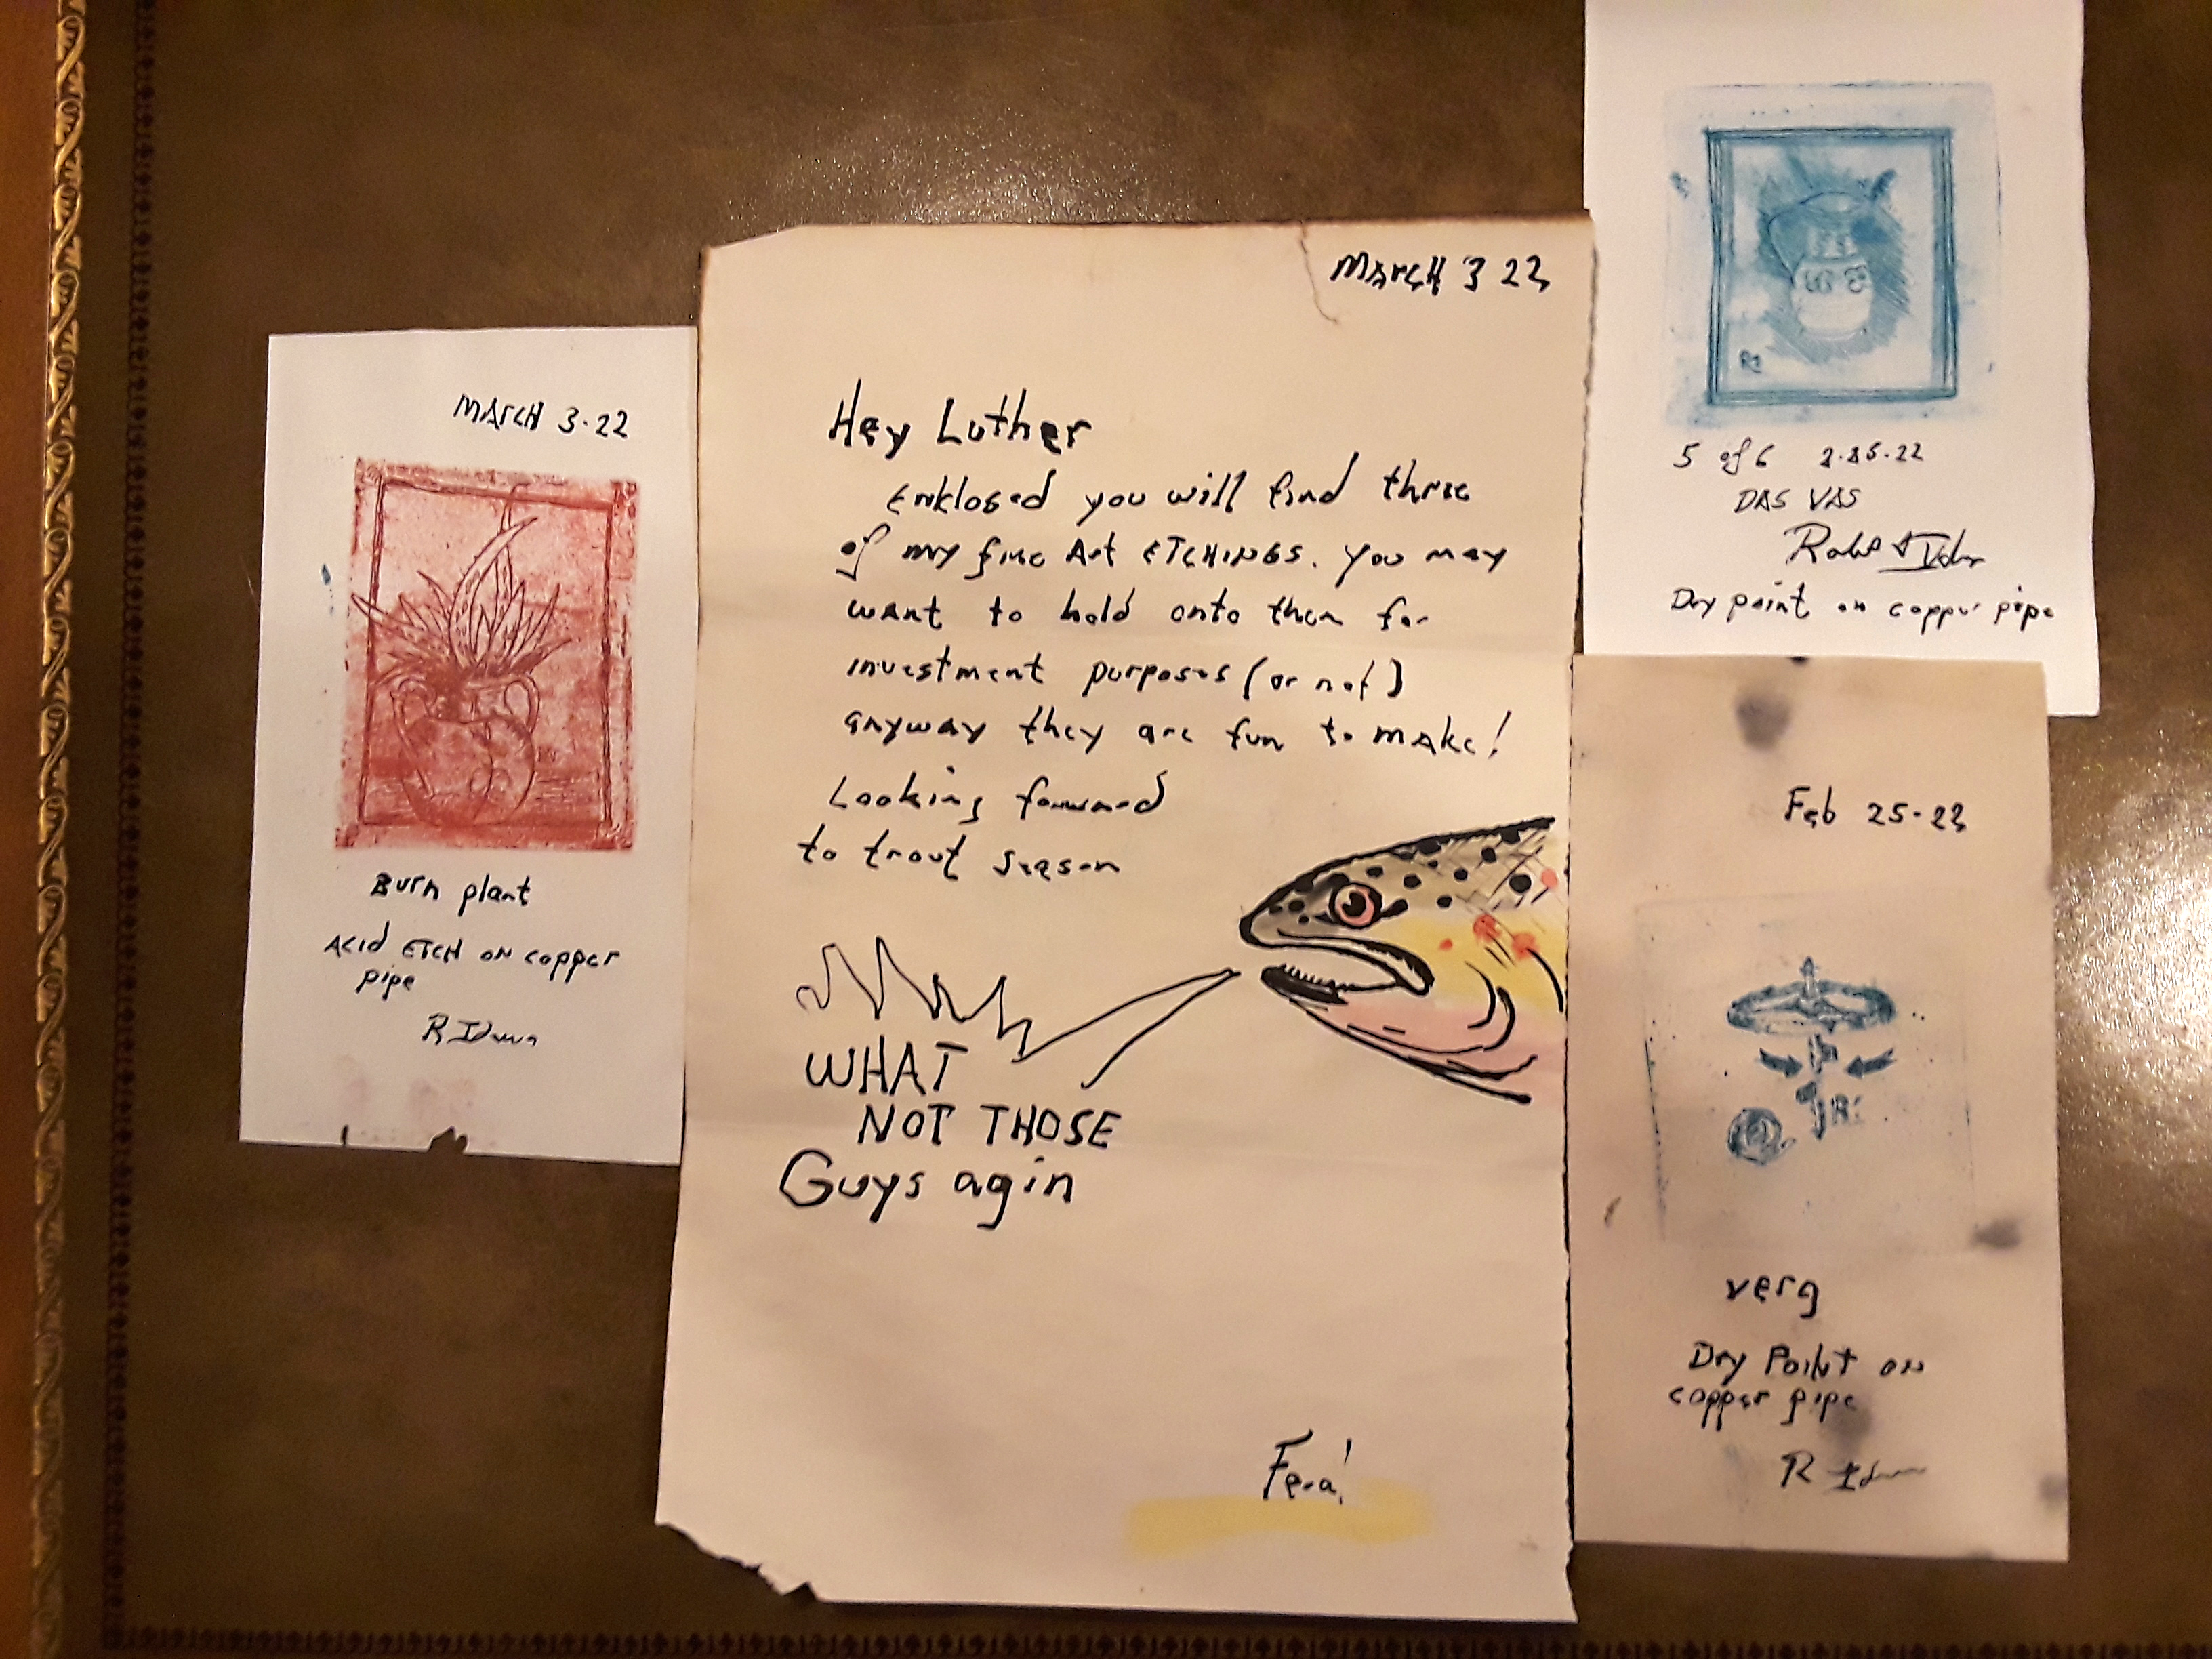 MARCH 3·22
Burn plant
Acid ETCH on copper
pipe
MARCH 3 22
Hey Luther
Enklosed you will find three
of my fine Art ETCHINGS. You may
want to hold onto them for
investment purposes (or not)
anyway they are fun to make!
Looking forward
to trout season
WHAT
NOT THOSE
Guys agin
5 of 6 2·25·22
DAS VAS
Dry point on copper pipe
Feb 25-22
verg
Dry Point on
copper pipe